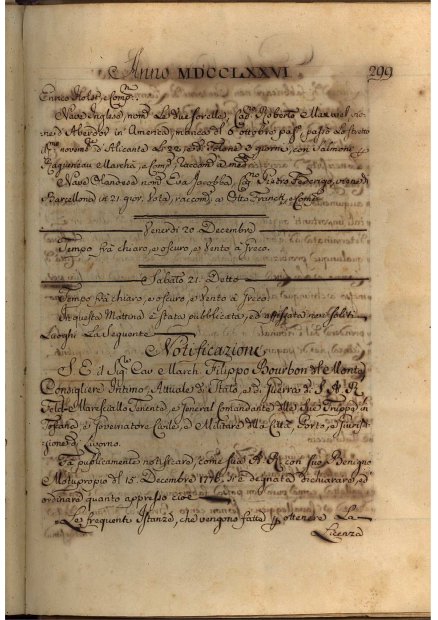 Anno MDCCLXXVI. 299
Enrico Holst, e Comp.
Nave Inglese, nom. Le Due Sorelle, Cap. Roberto Maxwel
in America, manca dl 6 ottobre pas. passò Lo stretto
novemb. d'Alicante Le 22, e di Tolone 3 giorni, con Salmone
March. e Comp. raccom. a med.
Nave Olandese nom. Eva Jacoba, Cap. Pietro Federigo, viene di
Barcellona in 21. gior. Vota, raccom. a Otto Franck, e Comp.
Venerdì 20 Decembre
Tempo frà chiaro, e oscuro, e Vento à Greco.
Sabato 21. Detto
Tempo frà chiaro, e oscuro, e Vento à Greco.
In questa Mattina è stata pubblicata, ed affissata nei soliti
Luoghi La Seguente
Notificazione
S. E. il Sig. Cav. e March. Filippo Bourbon del Monte
Consigliere Intimo, Attuale di Stato, e di Guerra di S. A. R.
Feld-Maresciallo Tenente, e General Comandante delle Sue Truppe in
Toscana e Governatore Civile, e Militare della Città, Porto, e Giurisdi=
zione di Livorno.
Fà pubblicamente notificare, come sua A. R. con suo Benigno
Motuproprio dl 15. Decembre 1776. si è degnata dichiarare, ed
ordinare quanto appresso cioè
Le frequenti Istanze, che vengono fatte p ottenere La
Licenza